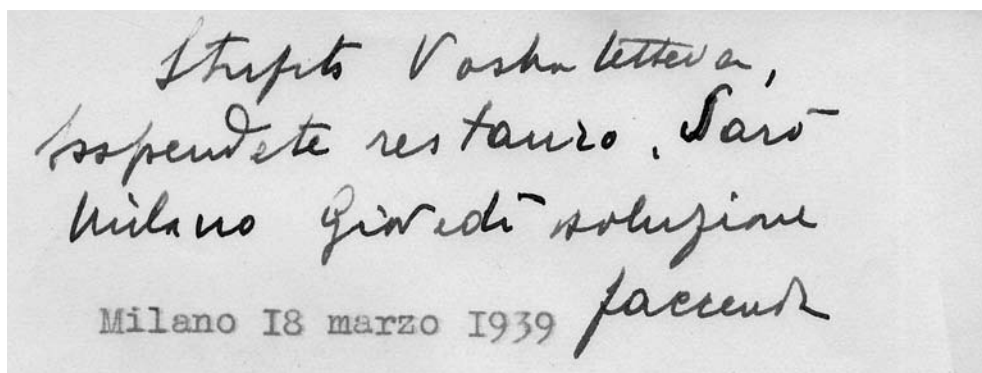 Stupito Vostra lettera,
sospendete restauro. Sarò
Milano Giovedì soluzione
faccenda
Milano I8 marzo I939